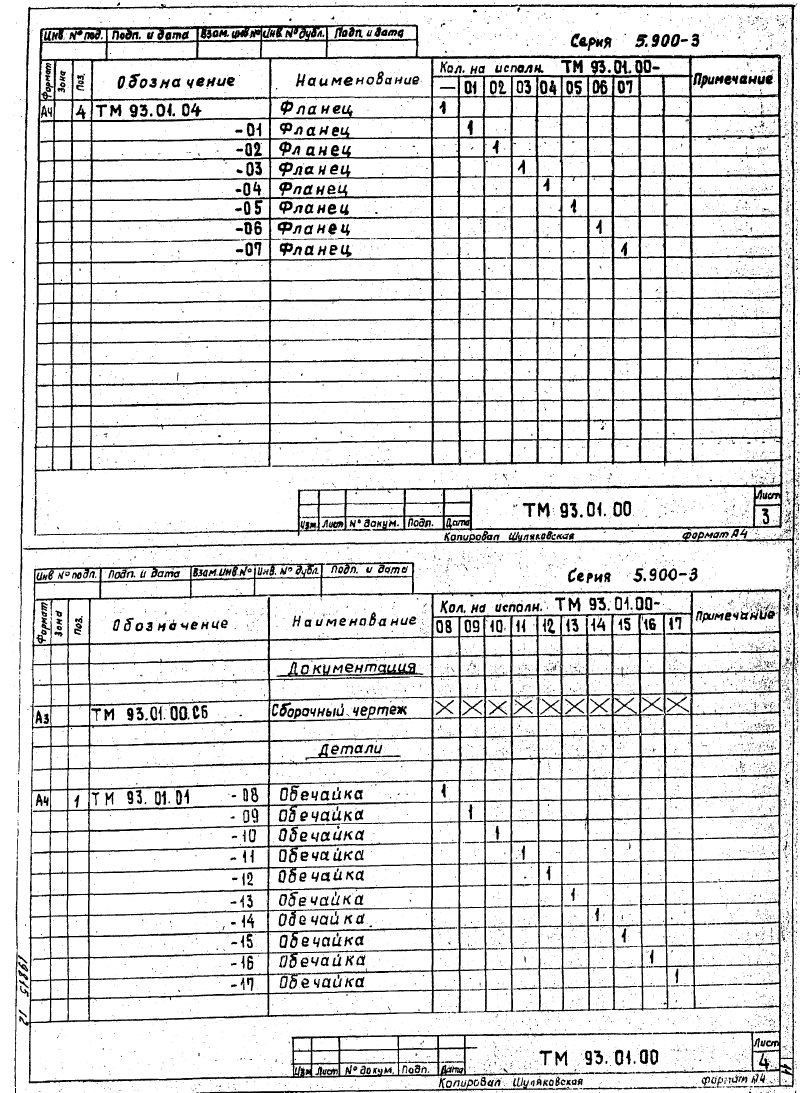 Инв. № под. Подп. и дата Взам. инв № Инв. № дубл. Подп. и дата
Серия 5.900-3
Формат Зона Поз. Обозначение Наименование Кол. на исполн. ТМ 93.01.00- Примечание
— 01 02 03 04 05 06 07
А4 4 ТМ 93.01.04 Фланец 1
-01 Фланец 1
-02 Фланец 1
-03 Фланец 1
-04 Фланец 1
-05 Фланец 1
-06 Фланец 1
-07 Фланец 1
Изм. Лист № докум. Подп. Дата
ТМ 93.01.00
Лист
3
Копировал Шуляковская формат А4
Инв № подл. Подп. и дата Взам.инв.№ Инв. № дубл. Подп. и дата
Серия 5.900-3
Формат Зона Поз. Обозначение Наименование Кол. на исполн. ТМ 93.01.00- Примечание
08 09 10 11 12 13 14 15 16 17
Документация
А3 ТМ 93.01.00.СБ Сборочный чертеж X X X X X X X X X X
Детали
А4 1 ТМ 93.01.01 -08 Обечайка 1
-09 Обечайка 1
-10 Обечайка 1
-11 Обечайка 1
-12 Обечайка 1
-13 Обечайка 1
-14 Обечайка 1
-15 Обечайка 1
-16 Обечайка 1
-17 Обечайка 1
Изм. Лист № докум. Подп. Дата
ТМ 93.01.00
Лист
4
Копировал Шуляковская формат А4
12